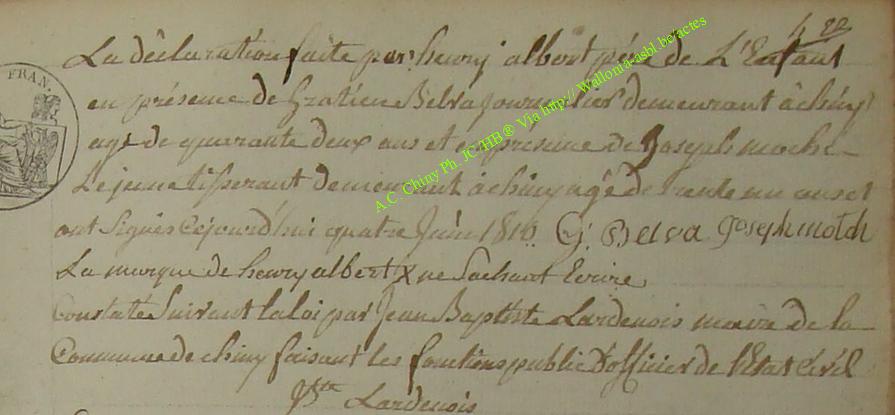 La déclaration faite par henry albert père de L'Enfant
en présence de Gratien Belva Journalier demeurant à chiny
agé de quarante deux ans et en présence de Joseph moche
Lejeune tisserant demeurant à chiny agé de trente un ans et
ont Signés Cejourd'hui quatre Juin 1810 G. Belva Joseph motch
La marque de henry albert X ne Sachant Ecrire
Constaté Suivant la loi par Jean Baptiste Lardenois maire de la
Commune de chiny faisant les fonctions public D'officier de l'Etat Civil
Lardenois
FRAN.
A.C. Chiny Ph. JC/HB® Via http:// Wallonia-asbl.be/actes